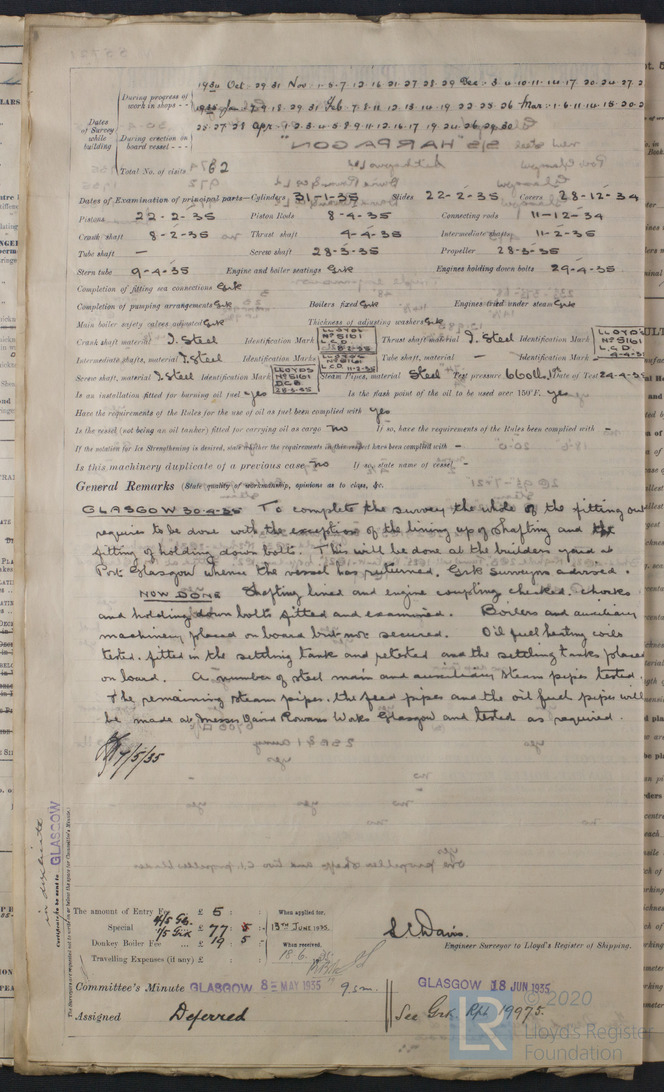 Dates of Survey while building
During progress of work in shops - -
1934 Oct 29.31 Nov 1.5.7.12.16.21.27.28.29 Dec 3.4.10.11.14.17.20.24.27.2
1935 Jan 7.9.18.29.31 Feb 7.8.11.12.13.14.19.22.25.26 Mar 1.6.11.14.15.20.2
During erection on board vessel - - -
25.27.28 Apr 1.2.3.4.5.8.9.11.12.16.17.19.24.26.29.30
Total No. of visits 62
Dates of Examination of principal parts—Cylinders 31-1-35 Slides 22-2-35 Covers 28-12-34
Pistons 22-2-35 Piston Rods 8-4-35 Connecting rods 11-12-34
Crank shaft 8-2-35 Thrust shaft 4-4-35 Intermediate shafts 11-2-35
Tube shaft — Screw shaft 28-3-35 Propeller 28-3-35
Stern tube 9-4-35 Engine and boiler seatings Grk Engines holding down bolts 29-4-35
Completion of fitting sea connections Grk
Completion of pumping arrangements Grk Boilers fixed Grk Engines tried under steam Grk
Main boiler safety valves adjusted Grk Thickness of adjusting washers Grk
Crank shaft material I. Steel Identification Mark LLOYDS No 5161 L.C.D 8-2-35 Thrust shaft material I. Steel Identification Mark LLOYD'S No 5161 L.C.D 4-4-35
Intermediate shafts, material I. Steel Identification Marks LLOYDS No 5161 L.C.D 11-2-35 Tube shaft, material — Identification Mark -
Screw shaft, material I. Steel Identification Mark LLOYDS No 5161 28-3-35 Steam Pipes, material Steel Test pressure 660 lbs Date of Test 24-4-35
Is an installation fitted for burning oil fuel yes Is the flash point of the oil to be used over 150°F. yes
Have the requirements of the Rules for the use of oil as fuel been complied with yes
Is the vessel (not being an oil tanker) fitted for carrying oil as cargo no If so, have the requirements of the Rules been complied with -
If the notation for Ice Strengthening is desired, state whether the requirements in this respect have been complied with -
Is this machinery duplicate of a previous case no If so, state name of vessel -
General Remarks (State quality of workmanship, opinions as to class, &c.
GLASGOW 30.4.35 To complete the survey the whole of the fitting out
requires to be done with the exception of the lining up of shafting and the
fitting of holding down bolts. This will be done at the builders yard at
Port Glasgow whence the vessel has returned. Grk surveyors advised.
NOW DONE Shafting lined and engine coupling checked. Chocks
and holding down bolts fitted and examined. Boilers and auxiliary
machinery placed on board but not secured. Oil fuel heating coils
tested, fitted in the settling tank and retested and the settling tanks placed
on board. A number of steel main and auxiliary steam pipes tested.
The remaining steam pipes, the feed pipes and the oil fuel pipes will
be made at Messrs David Rowans Works Glasgow and tested as required.
7/5/35
in duplicate
Certificate to be sent to GLASGOW
The Surveyors are requested not to write on or below the space for Committee's Minute.
The amount of Entry Fee £ 5 : : When applied for,
4/5 Gls.
Special 1/5 Grk £ 77 : 5 : 13TH JUNE 1935.
Donkey Boiler Fee ... £ 19 : 5 : When received,
Travelling Expenses (if any) £ : : 18.6.35
Engineer Surveyor to Lloyd's Register of Shipping.
Committee's Minute GLASGOW 8 - MAY 1935
GLASGOW 18 JUN 1935
Assigned Deferred
See Grk. Rpt 19975.
LR
© 2020
Lloyd's Register
Foundation